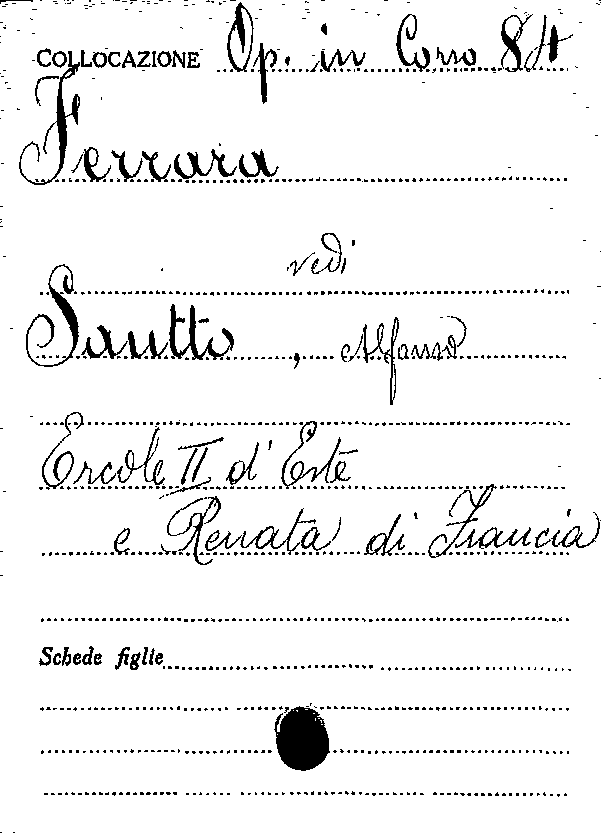 COLLOCAZIONE Op. in Corso 84
Ferrara
vedi
Sautto, Alfonso
Ercole II d'Este
e Renata di Francia
Schede figlie